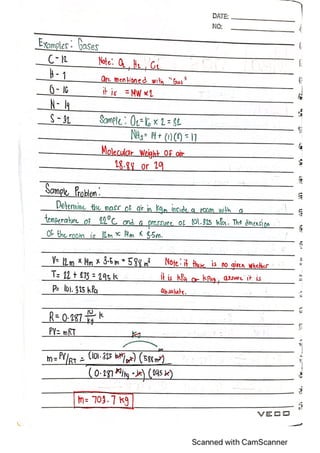 DATE:
NO:
Examples: Gases
C - 12
H - 1
O - 16
N - 14
S - 32
Note: O₂, H₂, Cl
are mentioned with "Gas"
it is = MW x2
Sample: O₂ = 16 x 2 = 32
NH₃ = 14 + (1)(3) = 17
Molecular Weight OF air
28.88 or 29
Sample Problem:
Determine the mass of air in kgm inside a room with a
temperature of 22°C and a pressure of 101.325 kPa. The dimension
of the room is 12m x 14m x 3.5m.
V = 12m x 14m x 3.5m = 588 m³
T = 22 + 273 = 295 K
P = 101.325 kPa
Note: if there is no given whether
it is kPa or kPag, assume it is
absolute.
R = 0.287
PV = mRT
m = PV/RT = (101.325 kN/m²) (588 m³)
(0.287 kJ/kg-K) (295 K)
m = 703.7 kg
VECO
Scanned with CamScanner